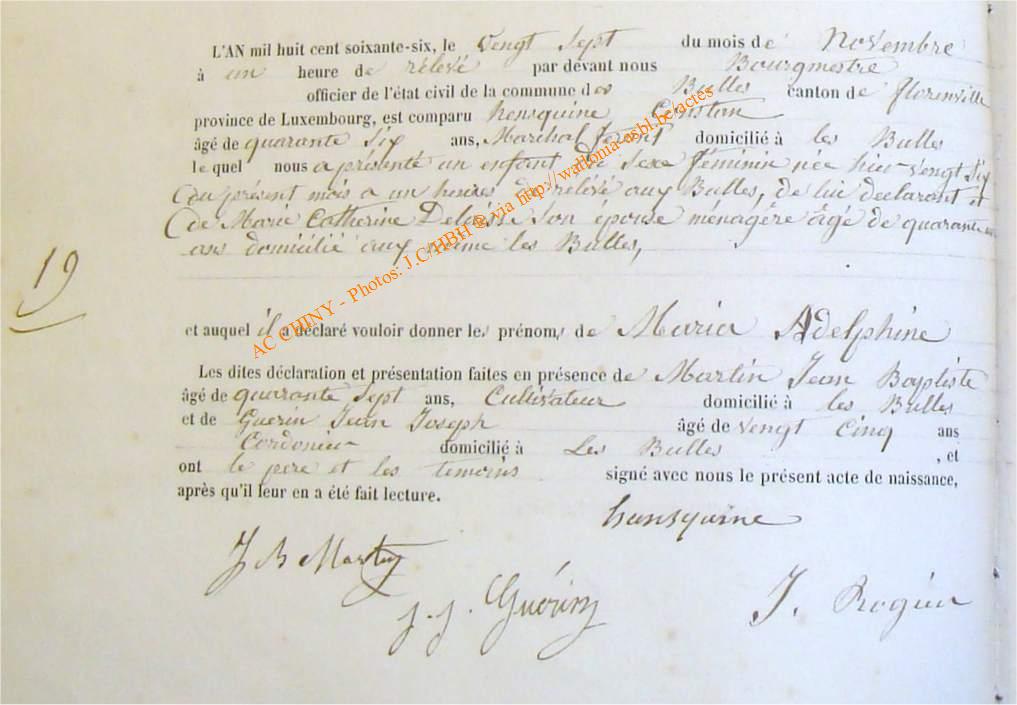 L'AN mil huit cent soixante-six, le vengt sept du mois de Novembre
à un heure de rélevé par devant nous Bourgmestre
officier de l'état civil de la commune des Bulles canton de florenville
province de Luxembourg, est comparu hensquine Constan
âgé de quarante Six ans, Marichal ferant domicilié à les Bulles
le quel nous a présenté un enfant de Sexe féminin née hier vengt Six
du présent mois a un heures de rélévé aux Bulles, de lui déclarant et
de Marie Catherine Son épouse ménagère âgé de quarante
ans domicilié aux même les Bulles,
19
et auquel il a déclaré vouloir donner les prénoms de Maria Adelphine
Les dites déclaration et présentation faites en présence de Martin Jean Baptiste
âgé de quarante Sept ans, Cultivateur domicilié à les Bulles
et de Guerin Jean Joseph âgé de vengt Cinq ans
Cordonier domicilié à Les Bulles , et
ont le pere et les temoins signé avec nous le présent acte de naissance,
après qu'il leur en a été fait lecture.
hensquine
J B Martin
J. J. Guérin
J. Rogier
AC CHINY - Photos: J.C/HBH @ via http://wallonia-asbl.be/actes